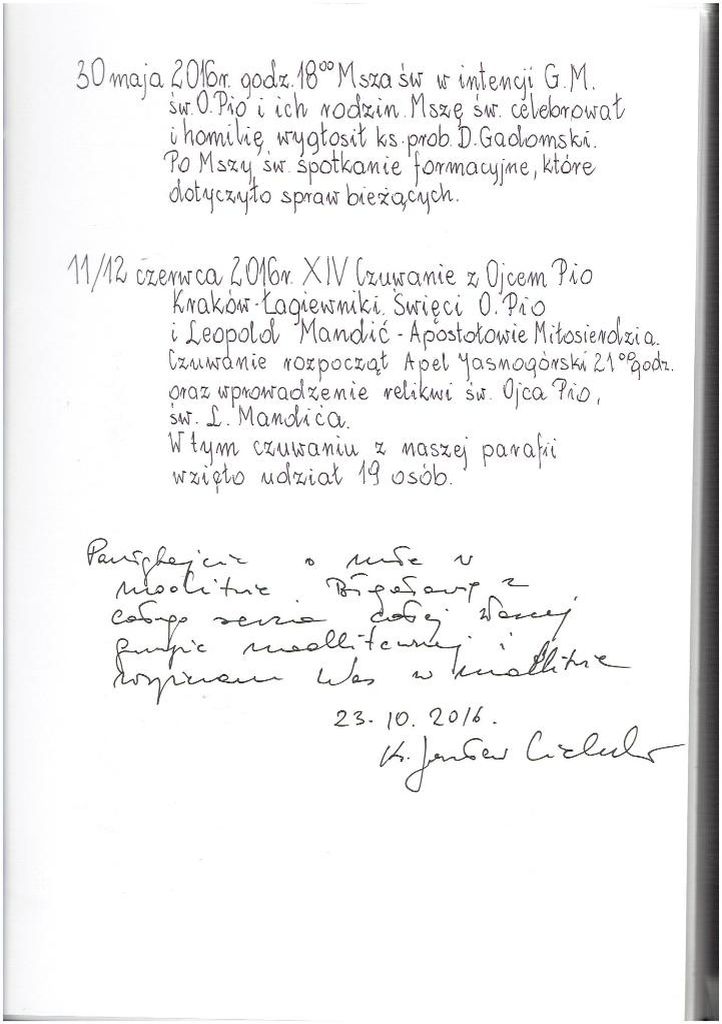 30 maja 2016r. godz. 18⁰⁰ Msza św w intencji G.M.
św. O. Pio i ich rodzin. Mszę św. celebrował
i homilię wygłosił ks. prob. D. Gadomski.
Po Mszy św. spotkanie formacyjne, które
dotyczyło spraw bieżących.
11/12 czerwca 2016r. XIV Czuwanie z Ojcem Pio
Kraków-Łagiewniki. Święci O. Pio
i Leopold Mandić - Apostołowie Miłosierdzia.
Czuwanie rozpoczął Apel Jasnogórski 21⁰⁰ godz.
oraz wprowadzenie relikwi św. Ojca Pio,
św. L. Mandića.
W tym czuwaniu z naszej parafii
wzięło udział 19 osób.
Pamiętajcie o mnie w
modlitwie Błogosławię z
całego serca całej Waszej
grupie modlitewnej i
wspieram Was w modlitwie
23.10.2016.
Ks. Jarosław